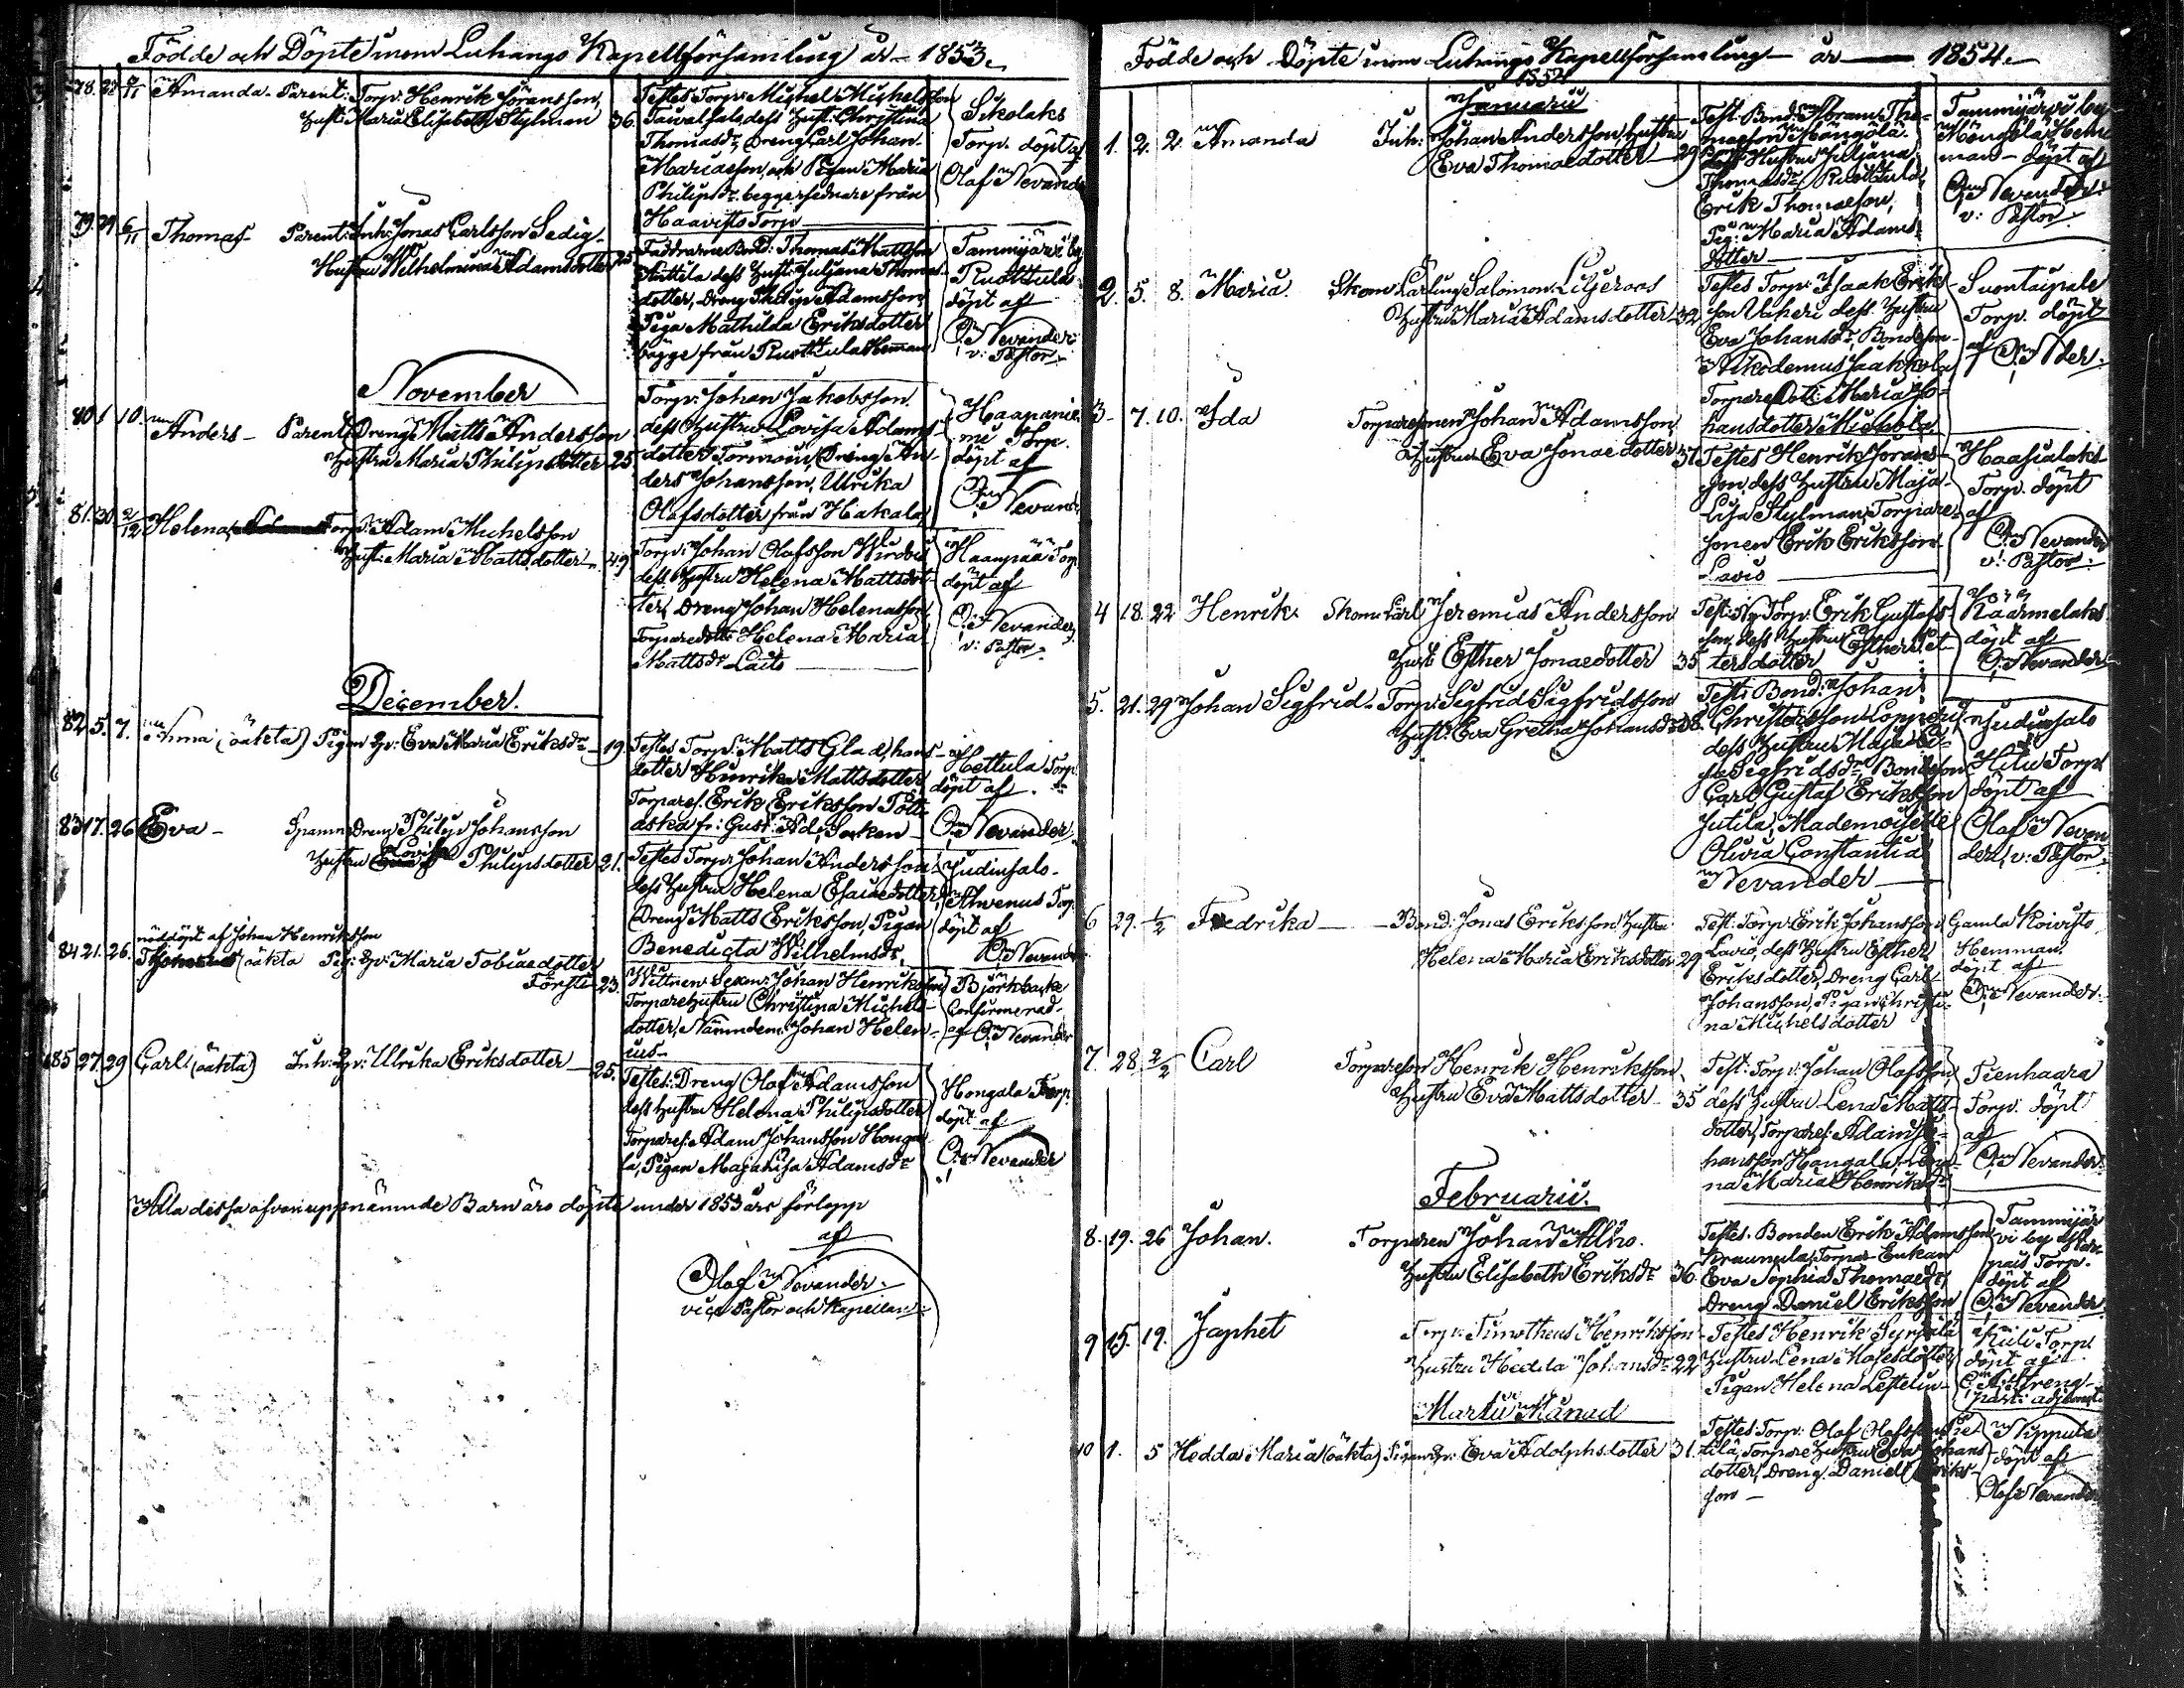 Födde och Döpte inom Luhango Kapellförsamling år 1853.
78. 6/11 Amanda. Parent: Torp: Henrik Göransson,
Hust: Maria Elisabeth Stylman 36.
Testes Torp: Michel Michelsson
Taival salo dess Hust: Christina
Thomasdr, Dreng Carl Johan
Mariasson, och Pigan Maria
Philipsdr. begge sednare från
Haavisto Torp
Sikolaks
Torp. döpt af
Olaf Nevander
79. 29 6/11 Thomas Parent: Inh: Jonas Carlsson Sedig
Hustru Wilhelmina Adamsdotter 25
Faddrarne Bond: Thomas Mattsson
Anttila dess Hust: Juljana Thomas-
dotter, Dreng Philip Adamsson,
Piga Mathilda Eriksdotter
bägge från Rusttula Hemman
Tammijärvi by
Rusttula
döpt af
O. Nevander
v: Pastor.
November
80 1 10. Anders Parent: Dreng Matts Andersson
Hustru Maria Philipsdotter 25
Torp: Johan Jakobsson
dess Hustru Lovisa Adams-
dotter, Dreng An-
ders Johansson, Ulrika
Olofsdotter från Hakala
Haapanie-
mi Torp.
döpt af
O. Nevander
81. 30 2/12 Helena, Torp: Adam Michelsson
Hust: Maria Mattsdotter 49
Torp: Johan Olofsson
dess Hustru Helena Mattsdot-
ter, Dreng Johan Helenasson,
Torparedott: Helena Maria
Mattsdr
Haanpää Torp
döpt af
O. Nevander
v: Pastor.
December.
82 5. 7. (oäkta) Pigan Qv: Eva Maria Eriksdr 19.
Testes Torp: Matts Glad, hans
dotter Hinrika Mattsdotter
Torpares. Erik Eriksson
fr: Gust: Ad: Socken
Hettula Torp.
döpt af
O. Nevander
83 17. 26 Eva Dreng Philip Johansson
Hustru Lovisa Philipsdotter 21.
Testes Torp: Johan Andersson
dess Hustru Helena Esaiaedotter,
Dreng Matts Eriksson, Pigan
Benedicta Wilhelmsdr.
Judinsalo
Ahvenus Torp.
döpt af
O. Nevander
nöddöpt af Johan Henriksson
84 21. 26. oäkta Pig: Qv: Maria Tobiaedotter
23.
Wittnen Sexm: Johan Henriksson
Torparehustru Christina Michels-
dotter, Nämndem: Johan Helen-
ius
Björkbacke
Confirmerad
af O. Nevander
85 27. 29 Carl (oäkta) Inh: Qv: Ulrika Eriksdotter 25.
Testes: Dreng Olof Adamsson
dess hustru Helena Philipsdotter
Torpares: Adam Johansson Honga-
la, Pigan Maja Lisa Adamsdr
Hongala Torp.
döpt af
O. Nevander
Alla dessa ofvan uppnämnde Barn äro döpte under 1853 års förlopp
af
Olof Nevander.
vice Pastor och Kapellan
Födde och Döpte inom Luhango Kapellförsamling år 1854.
1854
Januarii
1. 2. 2 Amanda Inh: Johan Andersson, Hustru
Eva Thomaedotter 29
Test. Bond: Abram Tho-
maeson Mängölä
Hustru Juljana
Thomasdr, Rusttula
Erik Thomaeson,
Pig: Maria Adams-
dotter
Tammijärvi by
Mängölä Hem-
man döpt af
O. Nevander
v: Pastor.
2. 5. 8. Maria. Skom: Lärling Salomon Liljeroos
Hustru Maria Adamsdotter 32
Testes Torp: Isaak Erik-
son Vuheri dess Hustru
Eva Johansdr, Bondeson
Nikodemus Jaakkola
Torpare Dott: Maria Jo-
hansdotter Mickola
Suontaipale
Torp. döpt
af O. Nder.
3 7. 10. Ida Torparesonen Johan Adamsson
Hustru Eva Jonaedotter 37
Testes Henrik Görans-
son, dess Hustru Maja
Lisa Stylman, Torpare-
sonen Erik Eriksson
Lavio
Haasialaks
Torp. döpt
af
O. Nevander
v: Pastor.
4 18. 22 Henrik Skom: Lärl: Jeremias Andersson
Hust: Esther Jonaedotter 35
Test: Torp: Erik Gustafs-
son, dess Hustru Esther Pet-
tersdotter
Käärmelaks
döpt af
O. Nevander
5. 21. 29 Johan Sigfrid Torp: Sigfrid Sigfridsson
Hust: Eva Gretha Johansdr 38.
Test: Bond: Johan
Christersson Lopperi
dess Hustru Maja Li-
sa Sigfridsdr, Bondeson
Carl Gustaf Eriksson
Jutila, Mademoiselle
Olivia Constantia
Nevander
Judinsalo
Torp
döpt af
Olof Nevan-
der, v: Pastor.
6 29. 1/2 Fredrika Bond: Jonas Eriksson, Hustru
Helena Maria Eriksdotter 29
Test: Torp: Erik Johansson
Lavio, dess Hustru Esther
Eriksdotter, Dreng Carl
Johansson, Pigan Christi-
na Michelsdotter
Gamla Koivisto
Hemman.
döpt af
O. Nevander.
7. 28 2/2 Carl Torpareson Henrik Henriksson
Hustru Eva Mattsdotter 35
Test: Torp: Johan Olofsson
dess Hustru Lena Matts-
dotter, Torpares: Adam Jo-
hansson Hongala,
na Maria Henriksdr
Tienhaara
Torp. döpt
af
O. Nevander.
Februarii.
8. 19. 26 Johan. Torparen Johan Alho.
Hustru Elisabeth Eriksdr 36
Testes. Bonden Erik Adamsson
Torpar Enkan
Eva Sophia Thomaedr,
Dreng Daniel Eriksson
Tammijär-
vi by
Torp.
döpt af
O. Nevander
9 15. 19. Japhet Torp: Timotheus Henriksson
Hustru Hedda Johansdr 22
Testes Henrik Syrjälä
Hustru Lena Mosesdotter
Pigan Helena
Torp.
döpt af
Martii Månad
10 1. 5 Hedda Maria (oäkta) Pigan Qv: Eva Adolphsdotter 31.
Testes Torp: Olof Olofsson
Torpare Hustru Eva Johans-
dotter, Dreng Daniel Eriks-
son
Nippula
döpt af
Olof Nevander